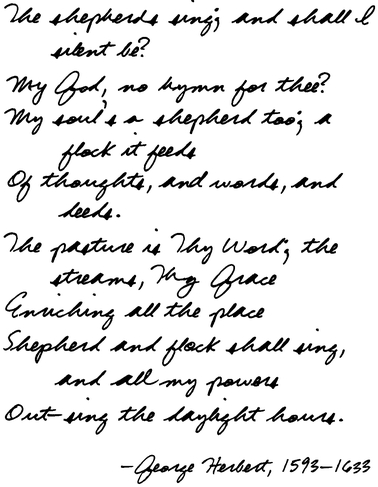 The shepherds sing; and shall I
silent be?
My God, no hymn for thee?
My soul's a shepherd too; a
flock it feeds
Of thoughts, and words, and
deeds.
The pasture is Thy Word; the
streams, Thy Grace
Enriching all the place
Shepherd and flock shall sing,
and all my powers
Out-sing the daylight hours.
—George Herbert, 1593–1633